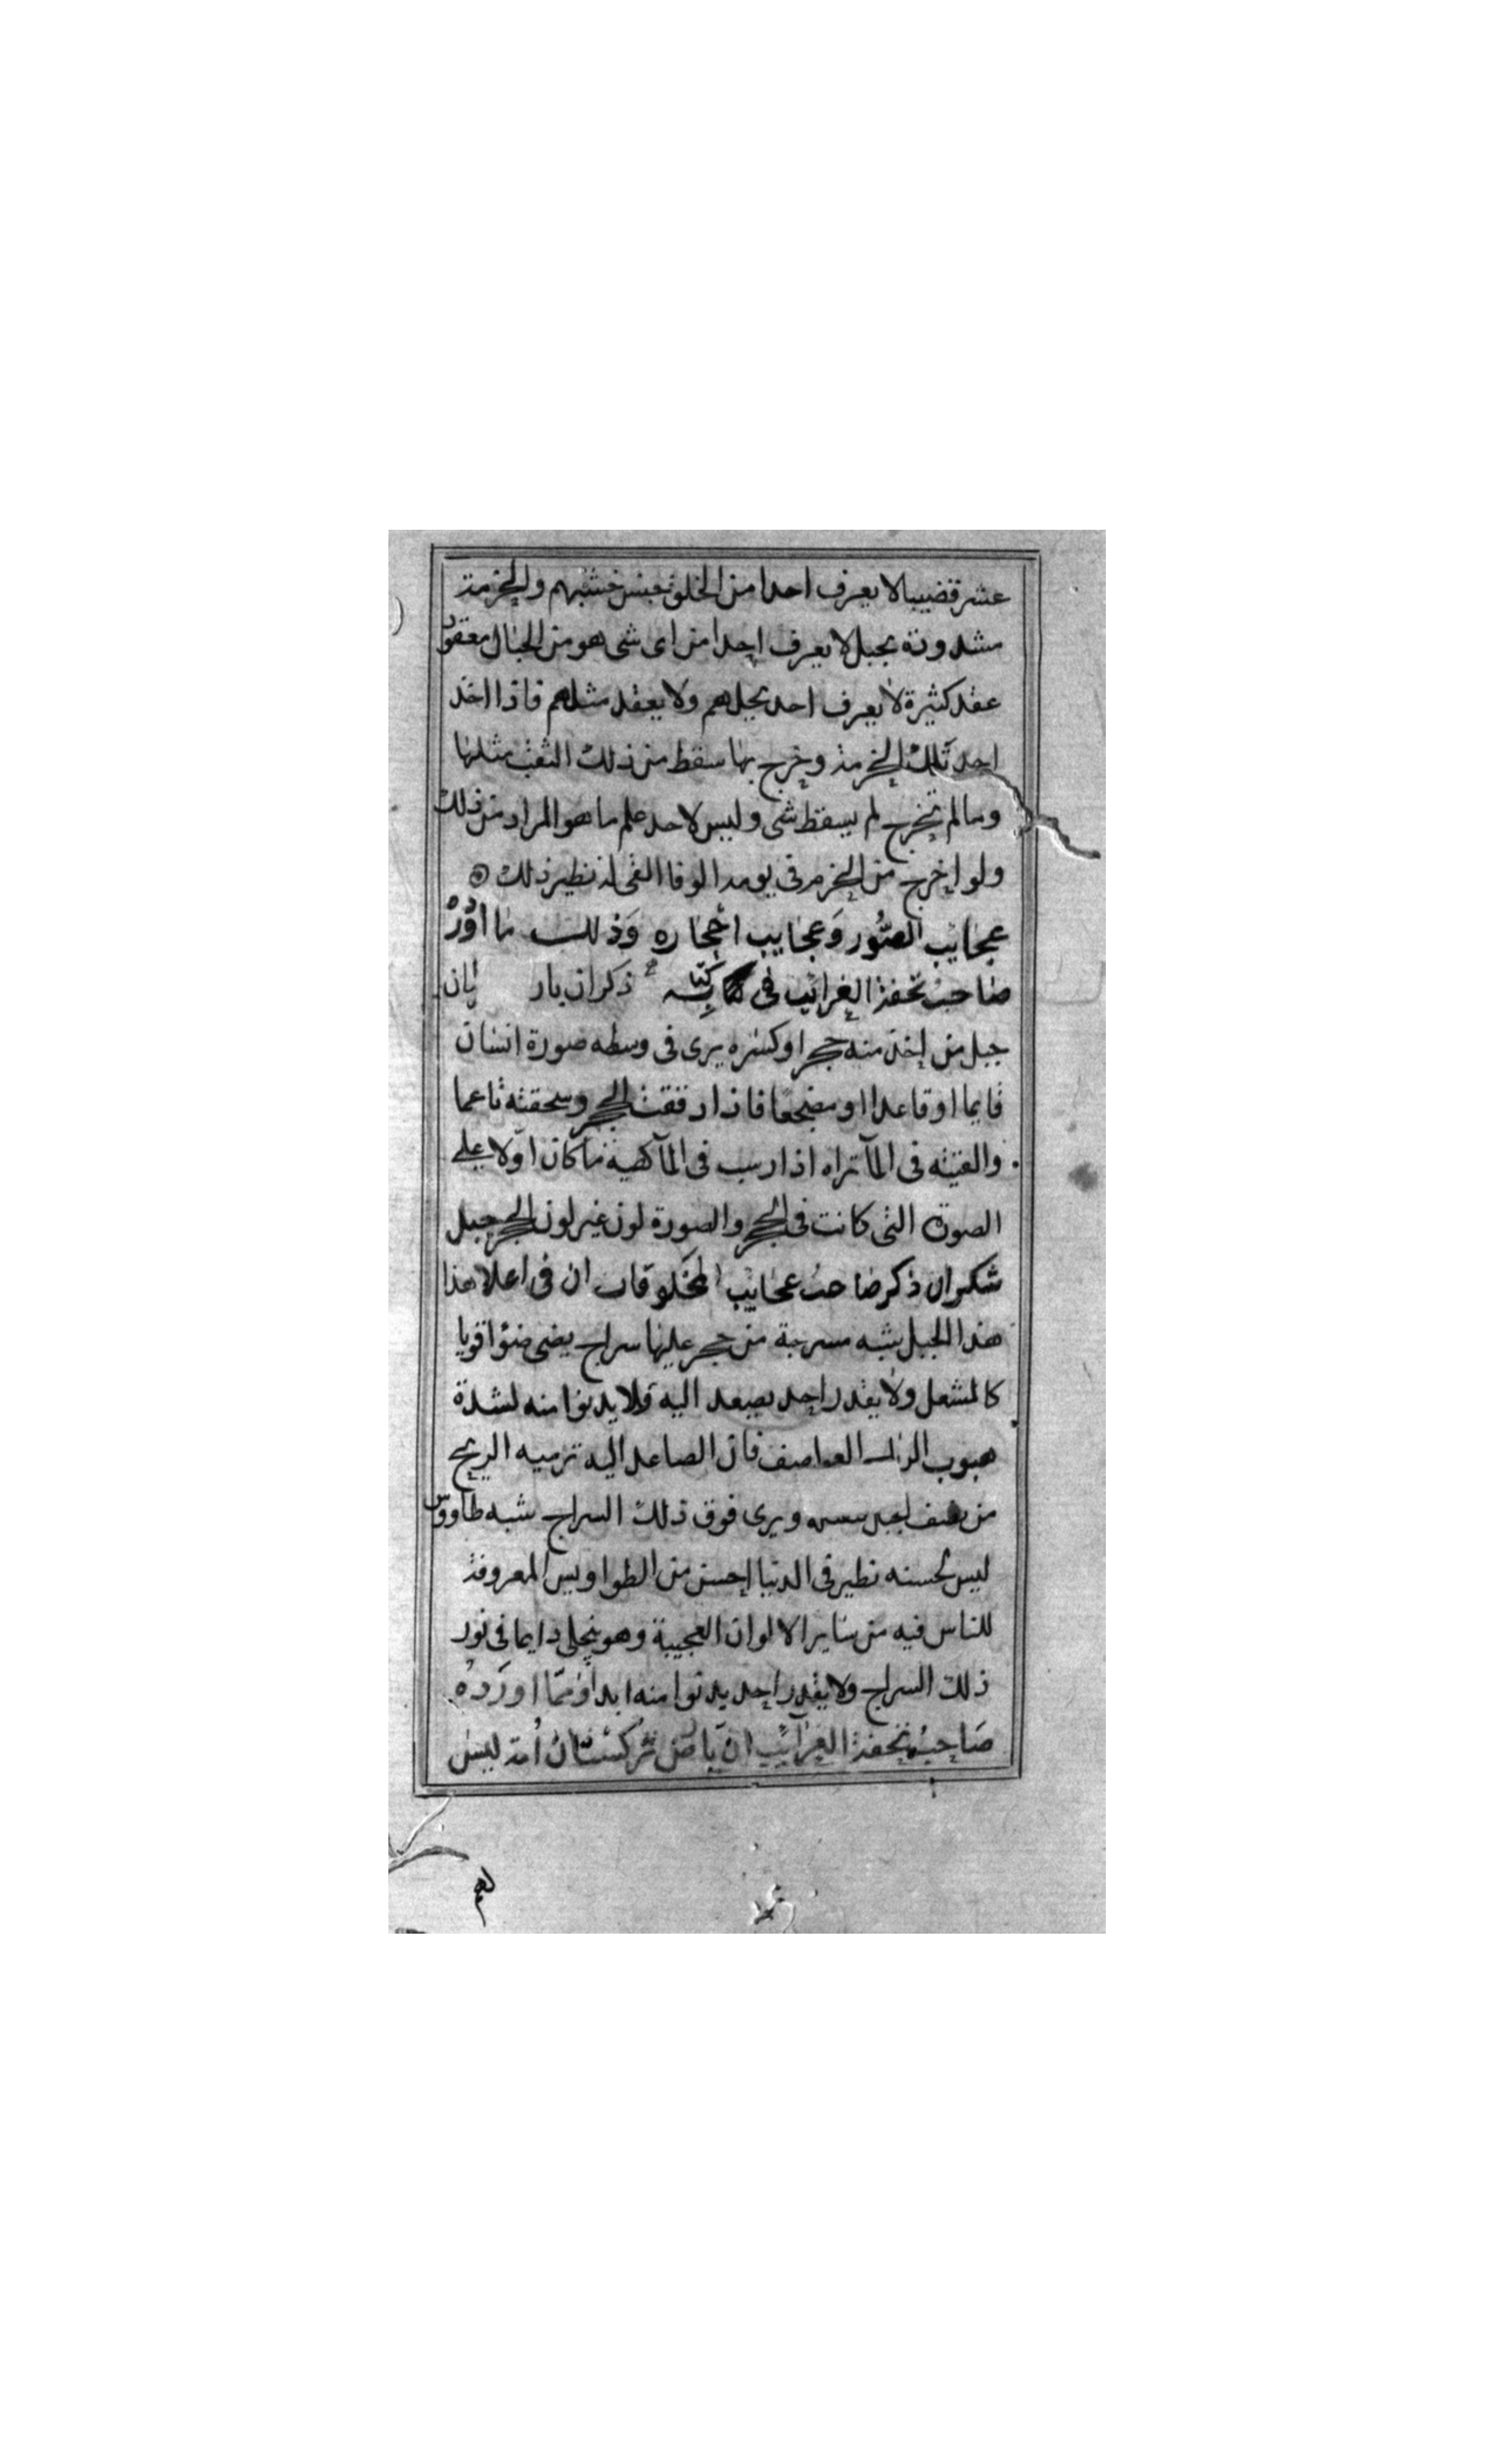 عشر قضيبا لا يعرف احدا من الخلق جنس خشبهم والحزمة
مشدودة بحبل لا يعرف احدا من اى شى هو من الحبال معقود
عقد كثيرة لا يعرف احد يحلهم ولا يعقد مثلهم فاذا اخد
احد تلك الحزمة وخرج بها سقط من ذلك الثقب مثلها
وما لم تخرج لم يسقط شى وليس لاحد علم ما هو المراد من ذلك
ولو اخرج من الحزم فى يومه الوفا القى له نظير ذلك
عجايب الصور وعجايب احجاره وذلك ما اورد
صاحب تحفة الغرائب فى كتابه ذكر ان بار
جبل من اخذ منه حجرا وكسره يرى فى وسطه صورة انسان
قايما او قاعدا او مضجعا فاذا دققت الحجر وسحقته ناعما
والقيته فى المآ تراه اذا رسب فى المآ كهية ما كان اولا على
الصورة التى كانت فى الحجر والصورة لون غير لون الحجر جبل
شكران ذكر صاحب عجايب المخلوقات ان فى اعلا هذا
هذا الجبل شبه مسرجة من حجر عليها سراج يضى ضوا قويا
كالمشعل ولا يقدر احد يصعد اليه ولا يدنوا منه لشدة
هبوب العواصف فان الصاعد اليه ترميه الريح
من ويرى فوق ذلك السراج شبه طاووس
ليس لحسنه نظير فى الدنيا احسن من الطواويس المعروفة
للناس فيه من ساير الالوان العجيبة وهو ينجلى دايما فى نور
ذلك السراج ولا يقدر احد يدنوا منه ابدا ومما اورده
صاحب تحفة الغرآئب ان بارض تركستان امة ليس
لهم